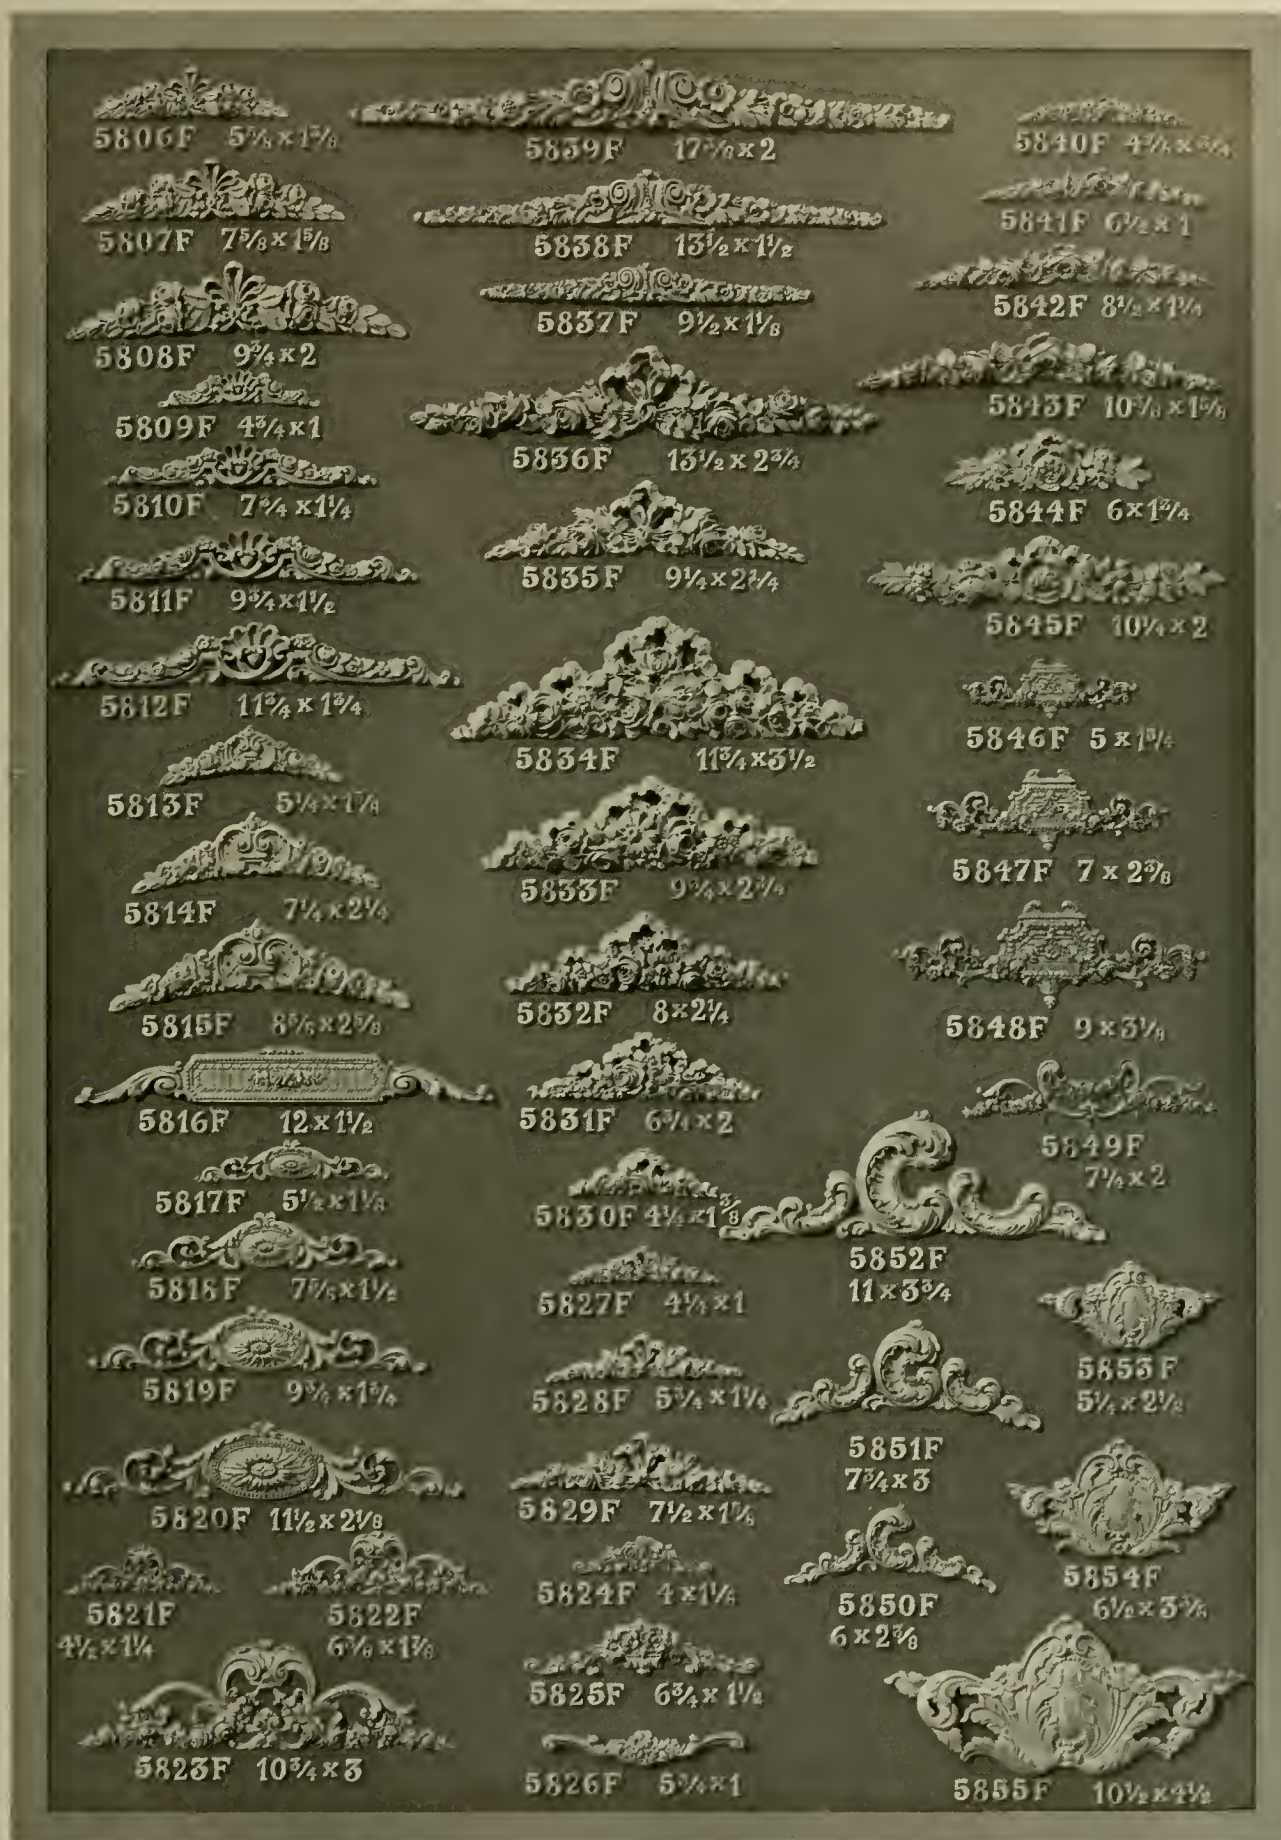 5806F 5⅝×1⅜
5807F 7⅝×1⅝
5808F 9¾×2
5809F 4¾×1
5810F 7¾×1¼
5811F 9¾×1½
5812F 11¾×1¾
5813F 5¼×1⅞
5814F 7¼×2¼
5815F 8⅝×2⅝
5816F 12×1½
5817F 5½×1⅛
5818F 7⅝×1½
5819F 9¾×1¾
5820F 11½×2⅛
5821F
4½×1¼
5822F
6⅜×1⅞
5823F 10¾×3
5839F 17⅜×2
5838F 13½×1½
5837F 9½×1⅛
5836F 13½×2¾
5835F 9¼×2¼
5834F 11¾×3½
5833F 9¾×2¾
5832F 8×2¼
5831F 6¾×2
5830F 4¼×1⅜
5827F 4¼×1
5828F 5¾×1¼
5829F 7½×1⅝
5824F 4×1⅛
5825F 6¾×1½
5826F 5¾×1
5840F 4⅜×¾
5841F 6½×1
5842F 8½×1¼
5843F 10⅜×1⅝
5844F 6×1¾
5845F 10¼×2
5846F 5×1¾
5847F 7×2⅜
5848F 9×3⅛
5849F
7¼×2
5852F
11×3¾
5851F
7¾×3
5850F
6×2⅜
5853F
5¼×2½
5854F
6½×3⅜
5855F 10½×4½